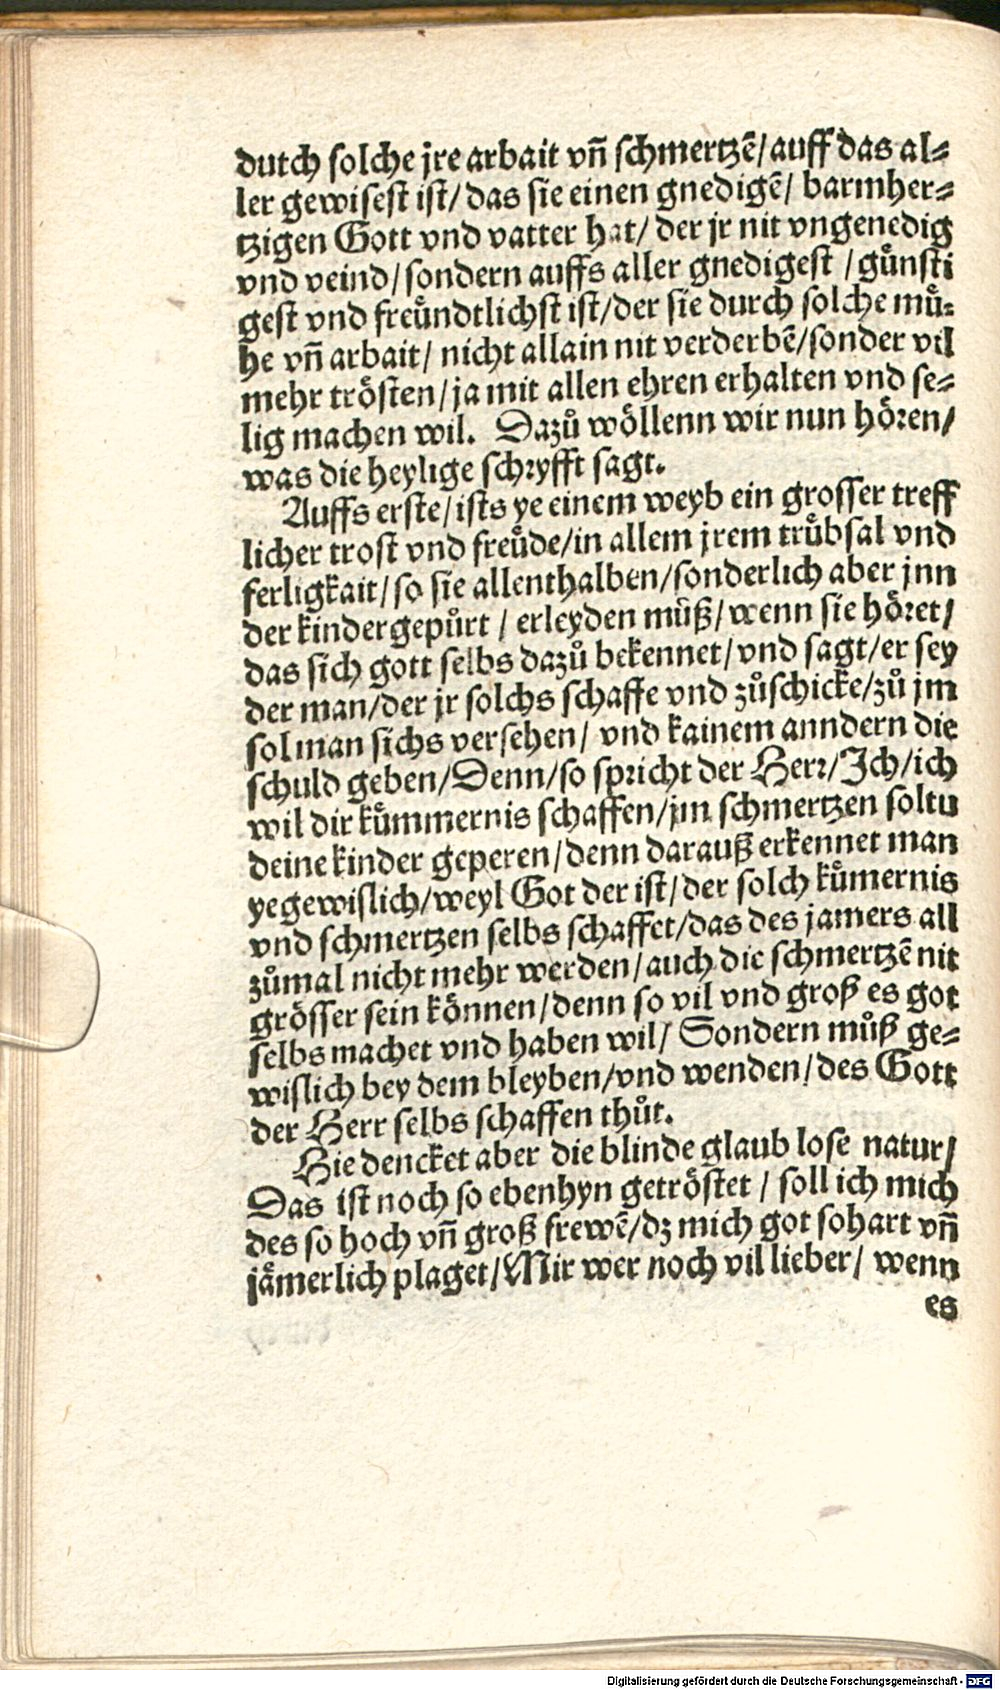 dutch solche jre arbait vn̄ schmertzē/ auff das al=
ler gewisest ist/ das sie einen gnedigē/ barmher=
tzigen Gott vnd vatter hat/ der jr nit vngenedig
vnd veind/ sondern auffs aller gnedigest / guͤnsti
gest vnd freuͤndtlichst ist/ der sie durch solche muͤ=
he vn̄ arbait/ nicht allain nit verderbē/ sonder vil
mehr troͤsten/ ja mit allen ehren erhalten vnd se=
lig machen wil. Dazuͦ woͤllenn wir nun hoͤren/
was die heylige schryfft sagt.
Auffs erste/ ists ye einem weyb ein grosser treff
licher trost vnd freuͤde/ in allem jrem truͤbsal vnd
ferligkait/ so sie allenthalben/ sonderlich aber jnn
der kindergepuͦrt / erleyden muͦß/ wenn sie hoͤret/
das sich gott selbs dazuͦ bekennet/ vnd sagt/ er sey
der man/ der jr solchs schaffe vnd zuͦschicke/ zuͦ jm
sol man sichs versehen/ vnd kainem anndern die
schuld geben/ Denn/ so spricht der Herr/ Ich/ ich
wil dir kuͤmmernis schaffen/ jm schmertzen soltu
deine kinder geperen/ denn darauß erkennet man
yegewislich/ weyl Got der ist/ der solch kuͤmernis
vnd schmertzen selbs schaffet/ das des jamers all
zuͦmal nicht mehr werden/ auch die schmertzē nit
groͤsser sein koͤnnen/ denn so vil vnd groß es got
selbs machet vnd haben wil/ Sondern muͦß ge=
wislich bey dem bleyben/ vnd wenden/ des Gott
der Herr selbs schaffen thuͦt.
Hie dencket aber die blinde glaub lose natur/
Das ist noch so ebenhyn getroͤstet / soll ich mich
des so hoch vn̄ groß frewē/ dz mich got so hart vn̄
jaͤmerlich plaget/ Mir wer noch vil lieber/ wenn
es
Digitalisierung gefördert durch die Deutsche Forschungsgemeinschaft - DFG